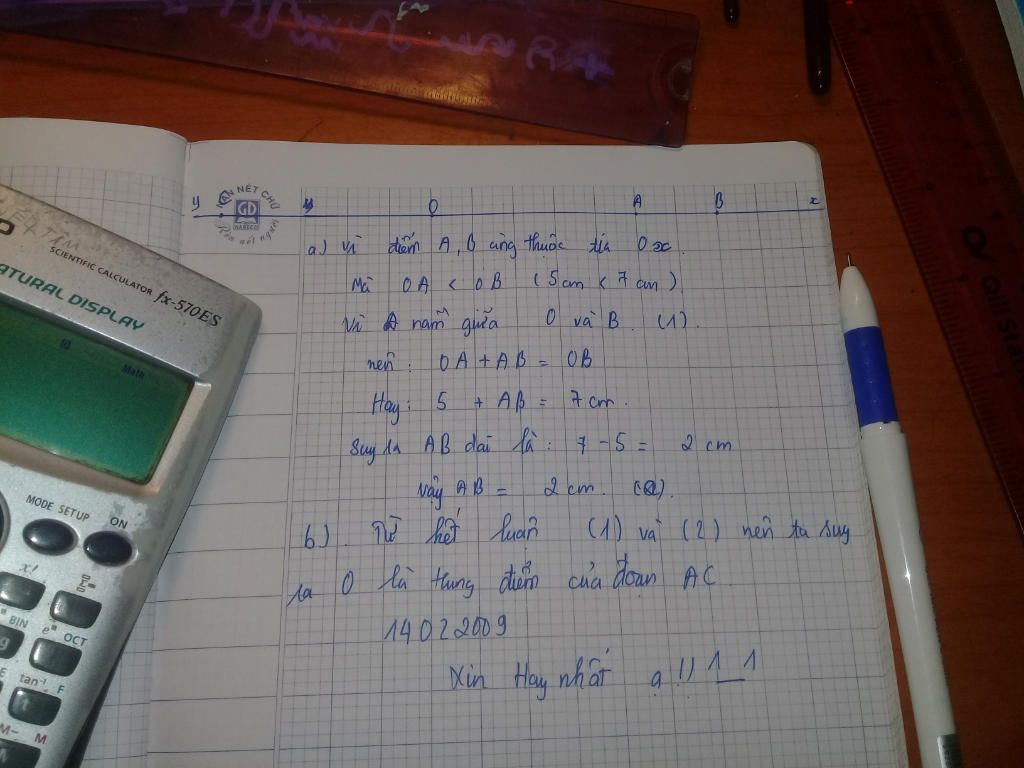 VĂN NÉT CHỮ
GD
HABECO
Rèn nết người
y O A B x
a) Vì điểm A, B cùng thuộc tia Ox
Mà OA < OB (5cm < 7cm)
Vì A nằm giữa O và B. (1).
nên: OA + AB = OB
Hay: 5 + AB = 7cm.
Suy ra AB dài là: 7 - 5 = 2 cm
vậy AB = 2 cm. (2).
b). Từ kết luận (1) và (2) nên ta suy
ra O là trung điểm của đoạn AC.
14022009
Xin Hay nhất ạ !!
SCIENTIFIC CALCULATOR fx-570ES
NATURAL DISPLAY
Math
MODE SETUP ON
x!
BIN OCT
tan⁻¹ F
M- M